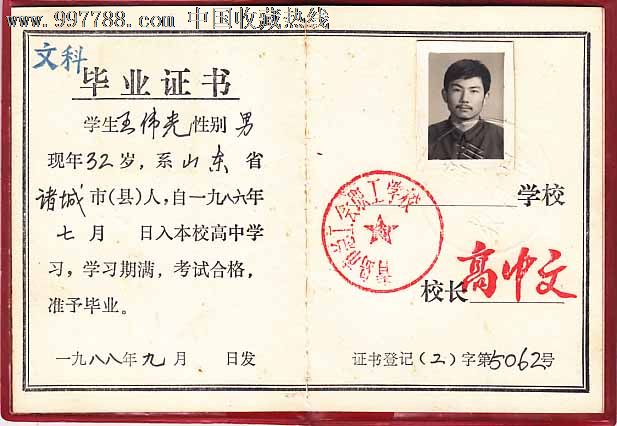 www.997788.com 中国收藏热线
文科
毕业证书
学生王伟光性别男
现年32岁，系山东省
诸城市(县)人，自一九八六年
七月 日入本校高中学
习，学习期满，考试合格，
准予毕业。
一九八八年九月 日发
青岛市总工会职工学校
学校
校长高中文
证书登记(工)字第5062号